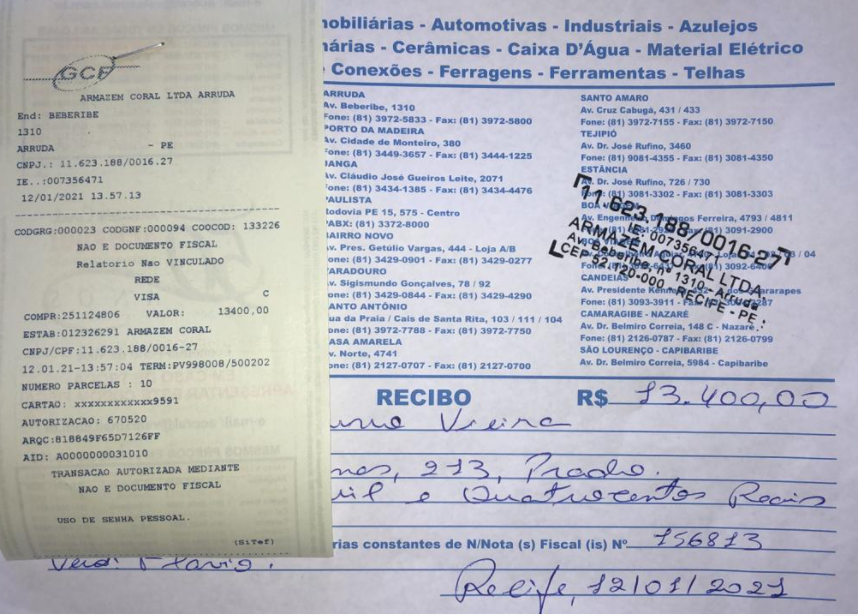 GCF
ARMAZEM CORAL LTDA ARRUDA
End: BEBERIBE
1310
ARRUDA - PE
CNPJ.: 11.623.188/0016.27
IE..:007356471
12/01/2021 13.57.13
CODGRG:000023 CODGNF:000094 COOCOD: 133226
NAO E DOCUMENTO FISCAL
Relatorio Nao VINCULADO
REDE
VISA C
COMPR:251124806 VALOR: 13400,00
ESTAB:012326291 ARMAZEM CORAL
CNPJ/CPF:11.623.188/0016-27
12.01.21-13:57:04 TERM:PV998008/500202
NUMERO PARCELAS : 10
CARTAO: xxxxxxxxxxxx9591
AUTORIZACAO: 670520
ARQC:818849F65D7126FF
AID: A0000000031010
TRANSACAO AUTORIZADA MEDIANTE
NAO E DOCUMENTO FISCAL
USO DE SENHA PESSOAL.
(SiTef)
mobiliárias - Automotivas - Industriais - Azulejos
nárias - Cerâmicas - Caixa D'Água - Material Elétrico
e Conexões - Ferragens - Ferramentas - Telhas
ARRUDA
Av. Beberibe, 1310
Fone: (81) 3972-5833 - Fax: (81) 3972-5800
PORTO DA MADEIRA
Av. Cidade de Monteiro, 380
Fone: (81) 3449-3657 - Fax: (81) 3444-1225
JANGA
Av. Cláudio José Gueiros Leite, 2071
Fone: (81) 3434-1385 - Fax: (81) 3434-4476
PAULISTA
Rodovia PE 15, 575 - Centro
PABX: (81) 3372-8000
BAIRRO NOVO
Av. Pres. Getúlio Vargas, 444 - Loja A/B
Fone: (81) 3429-0901 - Fax: (81) 3429-0277
VARADOURO
Av. Sigismundo Gonçalves, 78 / 92
Fone: (81) 3429-0844 - Fax: (81) 3429-4290
SANTO ANTÔNIO
Rua da Praia / Cais de Santa Rita, 103 / 111 / 104
Fone: (81) 3972-7788 - Fax: (81) 3972-7750
CASA AMARELA
Av. Norte, 4741
Fone: (81) 2127-0707 - Fax: (81) 2127-0700
SANTO AMARO
Av. Cruz Cabugá, 431 / 433
Fone: (81) 3972-7155 - Fax: (81) 3972-7150
TEJIPIÓ
Av. Dr. José Rufino, 3460
Fone: (81) 9081-4355 - Fax: (81) 3081-4350
ESTÂNCIA
Av. Dr. José Rufino, 726 / 730
Fone: (81) 3081-3302 - Fax: (81) 3081-3303
Av. Engenheiro Domingos Ferreira, 4793 / 4811
Fax: (81) 3091-2900
CANDEIAS
Av. Presidente Kennedy
Fone: (81) 3093-3911
CAMARAGIBE - NAZARÉ
Av. Dr. Belmiro Correia, 148 C - Nazaré
Fone: (81) 2126-0787 - Fax: (81) 2126-0799
SÃO LOURENÇO - CAPIBARIBE
Av. Dr. Belmiro Correia, 5984 - Capibaribe
11.623.188/0016-27
IE: 007356471
ARMAZÉM CORAL LTDA
Av. Beberibe, nº 1310 - Arruda
CEP 52.120-000 - RECIFE - PE
RECIBO R$ 13.400,00
Vieira
213, Prado.
mil e Quatrocentos Reais
rias constantes de N/Nota (s) Fiscal (is) Nº 156813
Vend: Flavio.
Recife, 12/01/2021